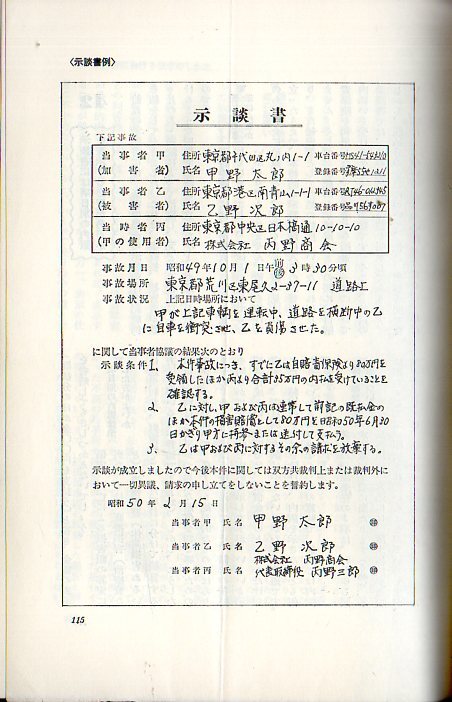 〈示談書例〉
示談書
下記事故
当事者甲 住所 東京都千代田区丸ノ内1-1 車台番号
(加害者) 氏名 甲野太郎 登録番号
当事者乙 住所 東京都港区南青山1-1-1 車台番号
(被害者) 氏名 乙野次郎 登録番号
当時者丙 住所 東京都中央区日本橋通10-10-10
(甲の使用者) 氏名 株式会社 丙野商会
事故月日 昭和49年10月1日午前後3時30分頃
事故場所 東京都荒川区東尾久2-37-11 道路上
事故状況 上記日時場所において
甲が上記車輌を運転中、道路を横断中の乙
に自車を衝突させ、乙を負傷させた。
に関して当事者協議の結果次のとおり
示談条件 1、本件事故につき、すでに乙は自賠責保険より80万円を
受領したほか丙より合計35万円の内払を受けていることを
確認する。
2、乙に対し、甲および丙は連帯して前記の既払金の
ほか本件の損害賠償として80万円を昭和50年6月30
日かぎり甲方に持参または送付して支払う。
3、乙は甲および丙に対するその余の請求を放棄する。
示談が成立しましたので今後本件に関しては双方共裁判上または裁判外に
おいて一切異議、請求の申し立てをしないことを誓約します。
昭和50年2月15日
当事者甲 氏名 甲野太郎 ㊞
当事者乙 氏名 乙野次郎 ㊞
株式会社 丙野商会
当事者丙 氏名 代表取締役 丙野三郎 ㊞
115